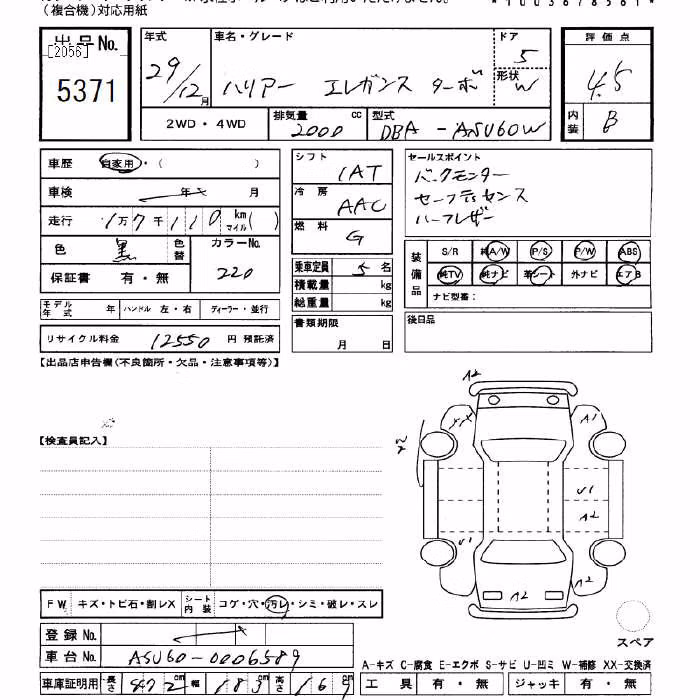 （複合機）対応用紙
出品No.
[2056]
5371
年式
29/12月
車名・グレード
ハリアー エレガンス ターボ
ドア
5
形状
W
評価点
4.5
内装
B
2WD・4WD
排気量
2000
cc
型式
DBA-ASU60W
車歴 自家用・( )
車検 年 月
走行 1万7千110km マイル( )
色 黒 色替 カラーNo.
220
保証書 有・無
モデル年式 年 ハンドル 左・右 ディーラー・並行
リサイクル料金 12550 円 預託済
シフト
IAT
冷房
AAC
燃料
G
乗車定員 5 名
積載量 kg
総重量 kg
書類期限
月 日
セールスポイント
バックモンター
セーフティセンス
ハーフレザー
装備品
S/R 純A/W P/S P/W ABS
純TV 純ナビ 革シート 外ナビ エアB
ナビ型番：
後日品
【出品店申告欄(不良箇所・欠品・注意事項等)】
【検査員記入】
A2
A1
U1
A2
U1
A2
スペア
FW キズ・トビ石・割レX シート内装 コゲ・穴・汚レ・シミ・破レ・スレ
登録No.
車台No. ASU60-0006589
車庫証明用 長さ 472cm 幅 183cm 高さ 169cm
A-キズ C-腐食 E-エクボ S-サビ U-凹ミ W-補修 XX-交換済
工具 有・無 ジャッキ 有・無